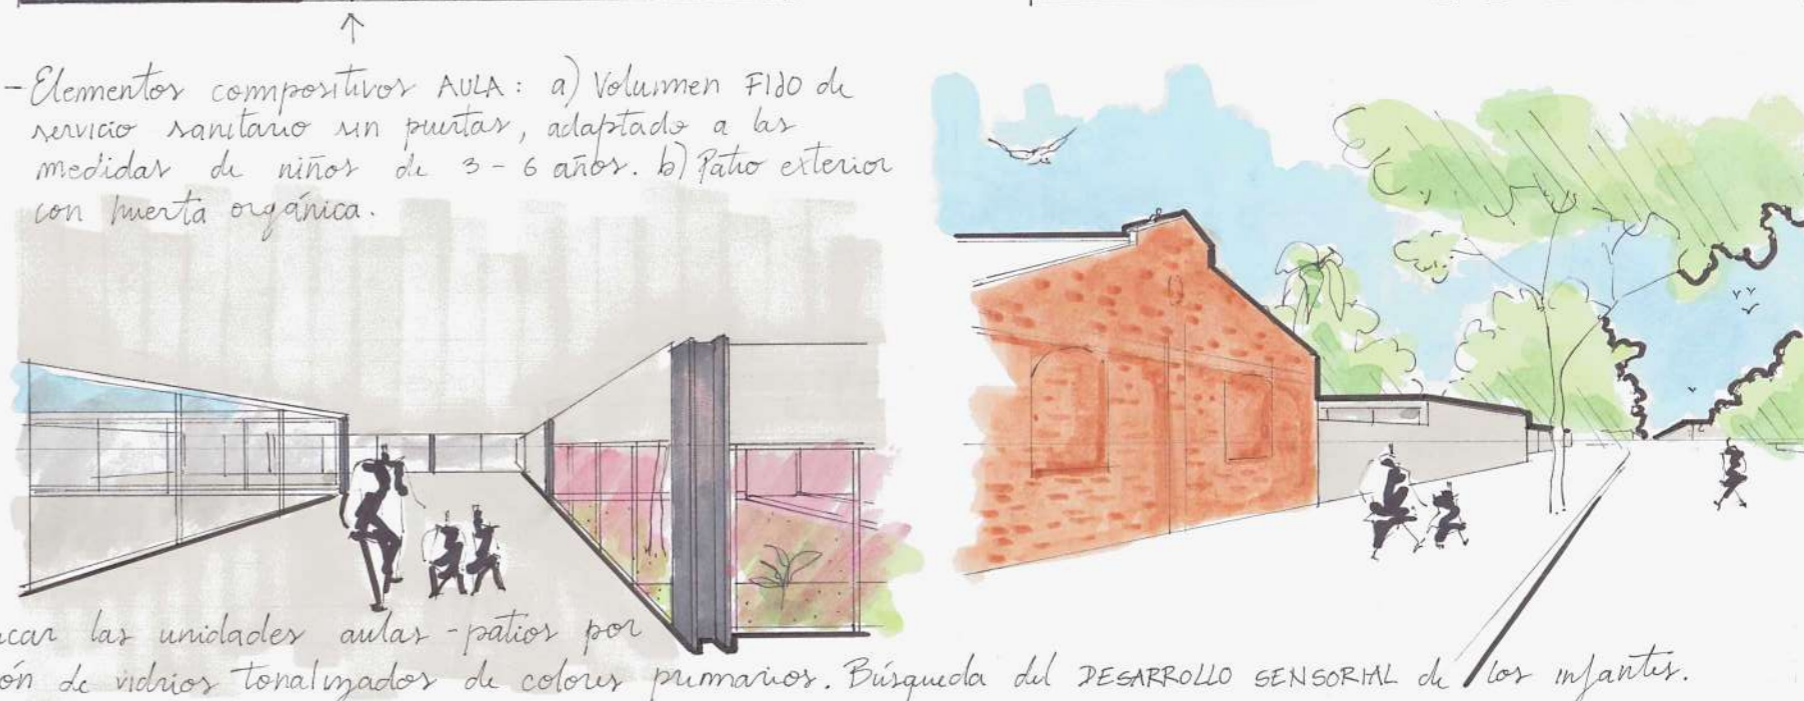 - Elementos compositivos AULA: a) Volumen FIJO de
servicio sanitario sin puertas, adaptado a las
medidas de niños de 3 - 6 años. b) Patio exterior
con huerta orgánica.
las unidades aulas - patios por
de vidrios tonalizados de colores primarios. Búsqueda del DESARROLLO SENSORIAL de los infantes.